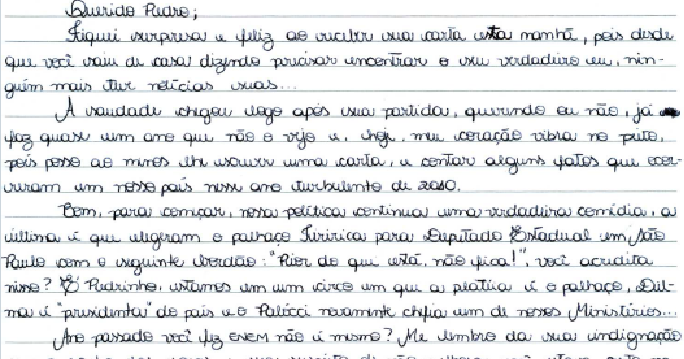 Querido Pedro,
Fiquei surpresa e feliz ao receber sua carta esta manhã, pois desde
que você saiu de casa dizendo precisar encontrar o seu verdadeiro eu, nin-
guém mais teve notícias suas...
A saudade chegou logo após sua partida, querendo eu não, já
faz quase um ano que não o vejo e, hoje, meu coração vibra no peito,
pois posso ao menos lhe escrever uma carta, e contar alguns fatos que ocor-
reram em nosso país nesse ano turbulento de 2010.
Bom, para começar, nossa política continua uma verdadeira comédia, a
última é que elegeram o palhaço Tiririca para Deputado Estadual em São
Paulo com o seguinte bordão: "Pior do que está, não fica!", você acredita
nisso? É Pedrinho, estamos em um circo em que a platéia é o palhaço, Dil-
ma é "presidenta" do país e o Palocci novamente chefia um de nossos Ministérios...
Ano passado você fez ENEM não é mesmo? Me lembro da sua indignação